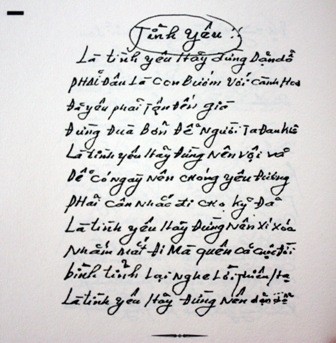 Tình yêu !
Là tình yêu Hãy đừng Dặn dỗ
PHải Đâu Là Con Bướm Với Cành Hoa
Đã yêu phải Tận Đến giờ
Đừng Đùa Bởn Để Người Ta Đau khổ
Là tình yêu Hãy Đừng Nên Vội vả
Để Có Ngày Nên Chồng yêu Đương
PHải Cân Nhắc đi CHo Kỷ Đã
Là tình yêu Hãy Đừng Nên Xí Xóa
Nhắm mắt Đi Mà quên Cả Cuộc Đời
bình tỉnh Lại Nghe Lời Thiên Hạ
Là tình yêu Hãy Đừng Nên